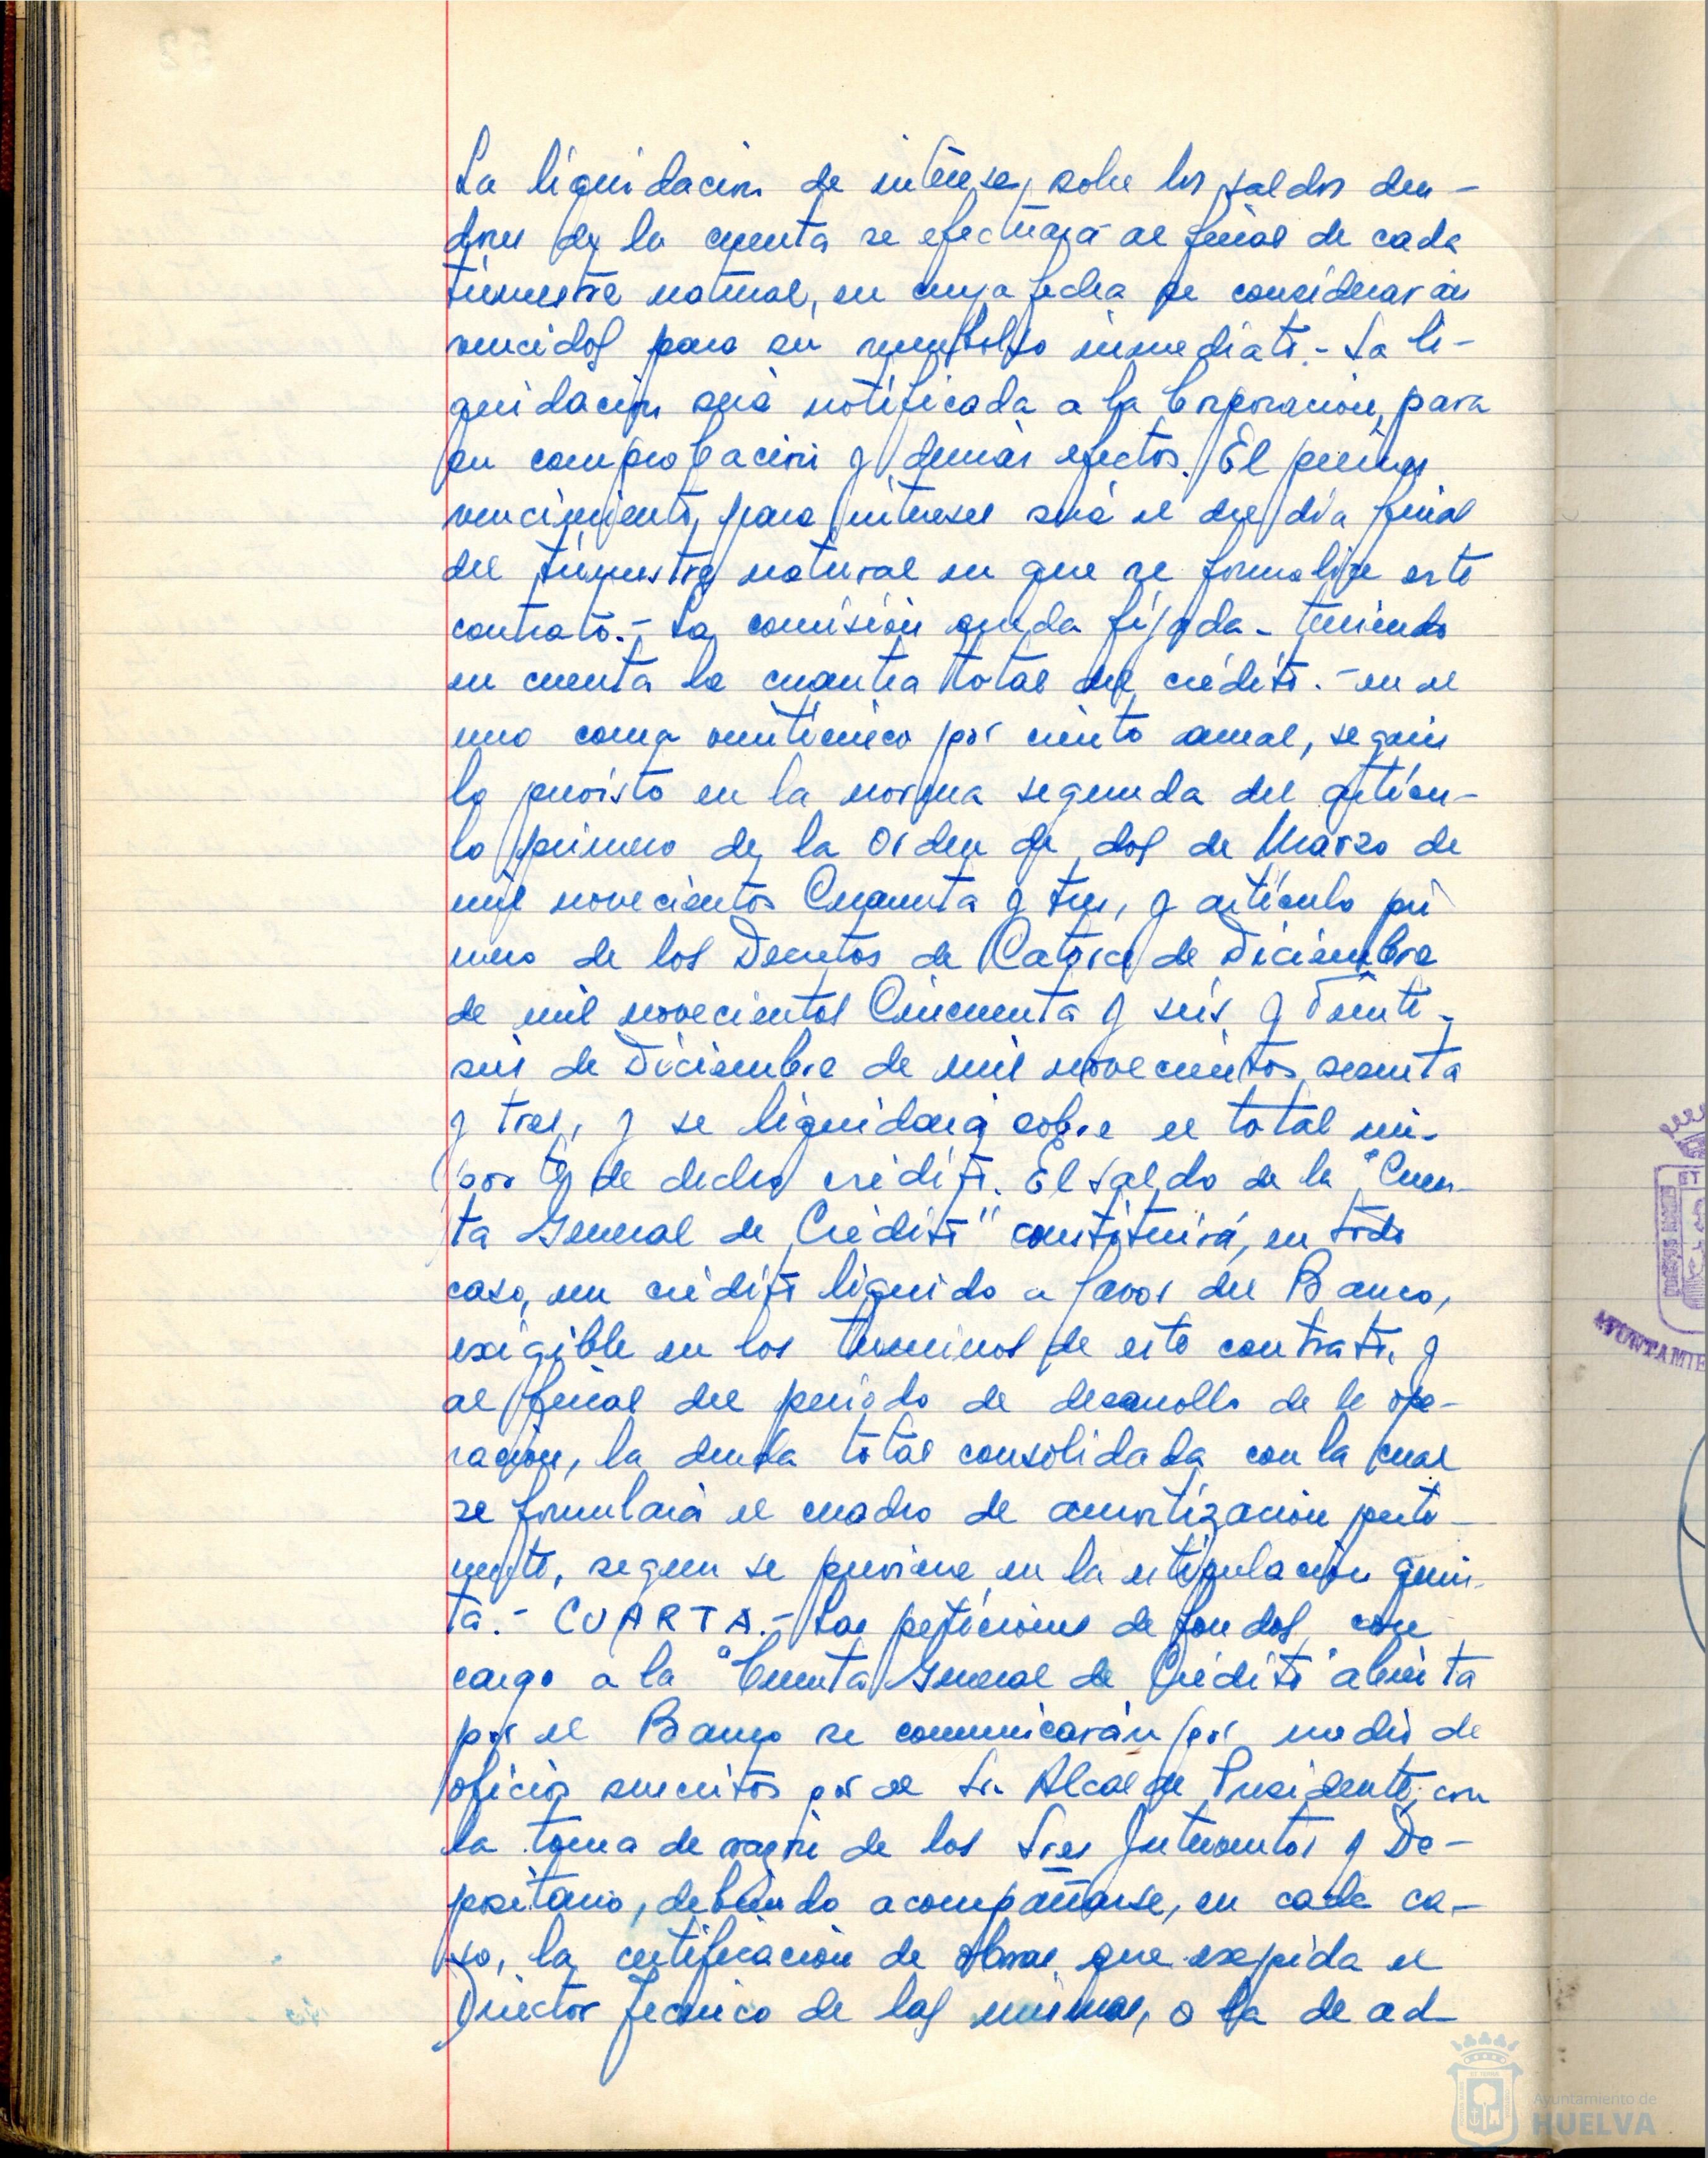 La liquidación de intereses sobre los saldos deu-
dores de la cuenta se efectuará al final de cada
trimestre natural, en cuya fecha se considerarán
vencidos para su reembolso inmediato.- La li-
quidación será notificada a la Corporación, para
su comprobación y demás efectos. El primer
vencimiento para intereses será el del día final
del trimestre natural en que se formalize este
contrato.- La comisión queda fijada - teniendo
en cuenta la cuantía total del crédito.- en el
uno coma veinticinco por ciento anual, según
lo previsto en la norma segunda del artícu-
lo primero de la Orden de dos de Marzo de
mil novecientos Cuarenta y tres, y artículo pri
mero de los Decretos de Catorce de Diciembre
de mil novecientos Cincuenta y seis y Veinti-
seis de Diciembre de mil novecientos sesenta
y tres, y se liquidará sobre el total im-
porte de dicho crédito. El saldo de la "Cuen-
ta General de Crédito" constituirá, en todo
caso, un crédito líquido a favor del Banco,
exigible en los términos de este contrato, y
al final del período de desarrollo de la ope-
ración, la deuda total consolidada con la cual
se formulará el cuadro de amortización perti-
nente, según se previene en la estipulación quin-
ta.- CUARTA.- Las peticiones de fondos con
cargo a la "Cuenta General de Crédito" abierta
por el Banco se comunicarán por medio de
oficios suscritos por el Sr. Alcalde Presidente, con
la toma de razón de los Sres Interventor y De-
positario, debiendo acompañarse, en cada ca-
so, la certificación de obras que expida el
Director Técnico de las mismas, o la de ad-
AYUNTAMIE
Ayuntamiento de
HUELVA